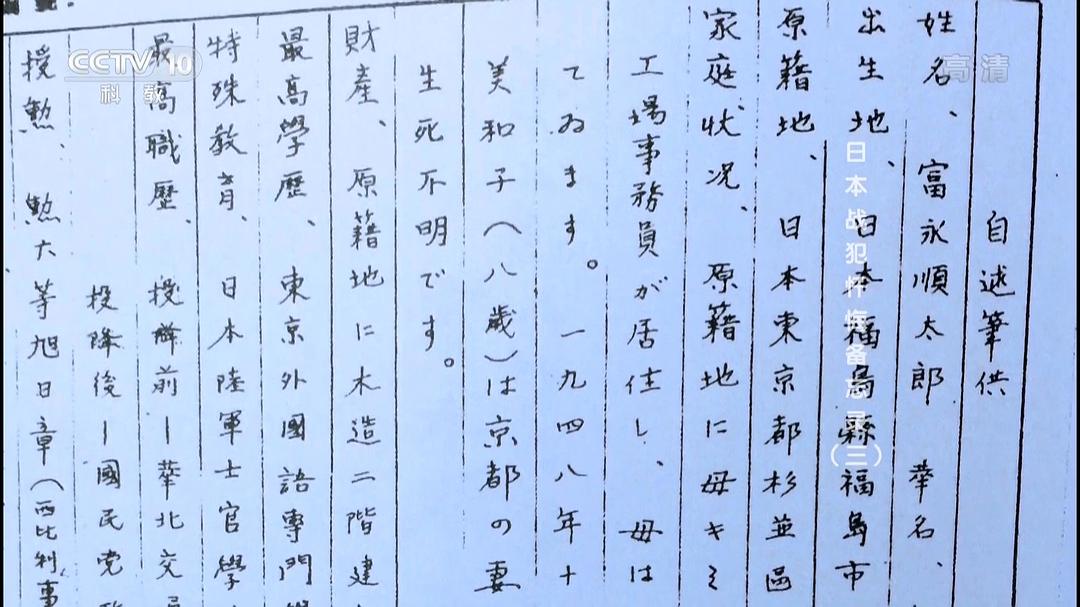 CCTV 10
科教
高清
日本战犯忏悔备忘录(三)
自述筆供
姓名、富永順太郎 華名、
出生地、日本福島縣福島市
原籍地、日本東京都杉並區
家庭状况、原籍地に母キミ
工場事務員が居住し、母は
てゐます。一九四八年十
美和子(八歳)は京都の妻
生死不明です。
財產、原籍地に木造二階建
最高學歷、東京外國語專門
特殊教育、日本陸軍士官學
最高職歷、投降前ー華北交
投降後ー國民党
授勲、勲六等旭日章(西比利事